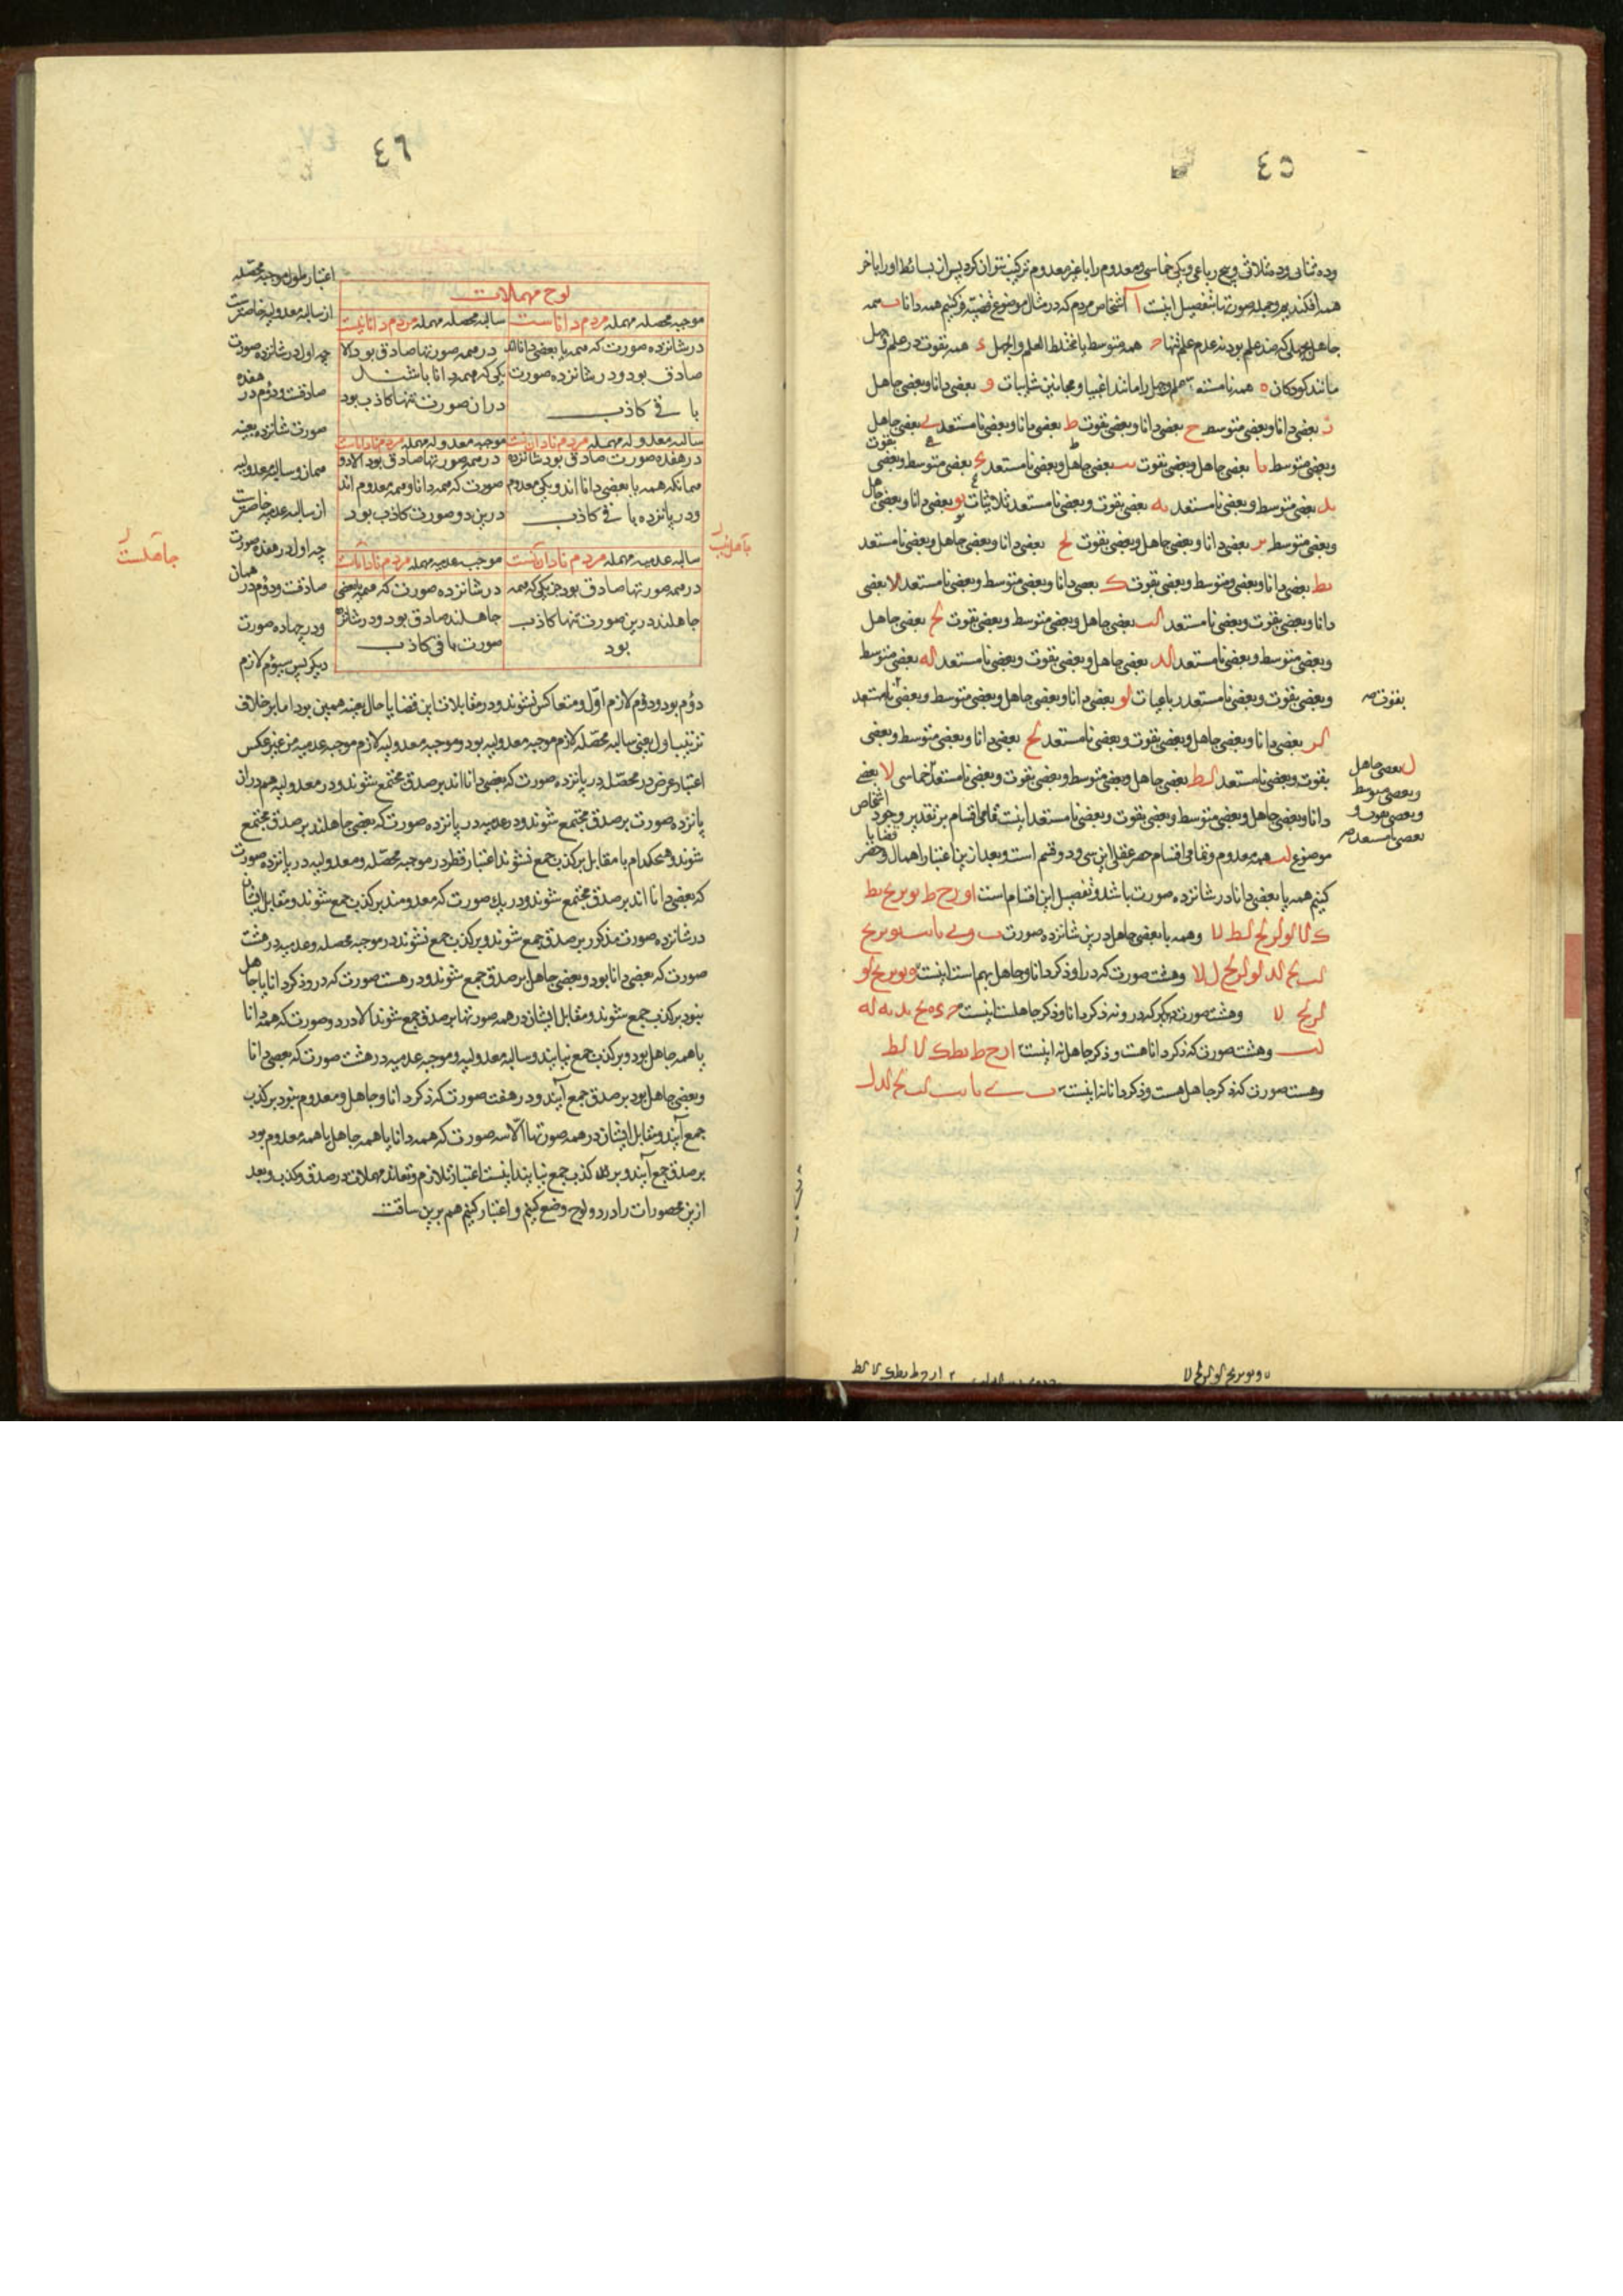 ٤٥
وده ثنائی و ده ثلاثی و پنج رباعی و یکی خماسی و معدوم را با غیر معدوم ترکیب نتوان کرد پس از بسائط او را با خر
همه افکند پس و جمله صورتها بتفصیل اینست آ اشخاص مردم که در مثال موضوع قضیه فرض کنیم همه دانا ب همه
جاهل بجهلی که ضد علم بود نه عدم علم تنها ح همه متوسط یا مختلط العلم والجهل ء همه بقوت در علم و جهل
مانند کودکان ه همه نامستعد علم و جهل را مانند اغبیا و مجانین شابیات و بعضی دانا و بعضی جاهل
ز بعضی دانا و بعضی متوسط ح بعضی دانا و بعضی بقوت ط بعضی دانا و بعضی نامستعد ی بعضی جاهل
و بعضی متوسط یا بعضی جاهل و بعضی بقوت یب بعضی جاهل و بعضی نامستعد یج بعضی متوسط و بعضی بقوت
ید بعضی متوسط و بعضی نامستعد یه بعضی بقوت و بعضی نامستعد ثلاثیات یو بعضی دانا و بعضی جاهل
و بعضی متوسط یز بعضی دانا و بعضی جاهل و بعضی بقوت یح بعضی دانا و بعضی جاهل و بعضی نامستعد
یط بعضی دانا و بعضی متوسط و بعضی بقوت ک بعضی دانا و بعضی متوسط و بعضی نامستعد کا بعضی
دانا و بعضی بقوت و بعضی نامستعد کب بعضی جاهل و بعضی متوسط و بعضی بقوت کج بعضی جاهل
و بعضی متوسط و بعضی نامستعد کد بعضی جاهل و بعضی بقوت و بعضی نامستعد که بعضی متوسط
و بعضی بقوت و بعضی نامستعد رباعیات کو بعضی دانا و بعضی جاهل و بعضی متوسط و بعضی نامستعد
بقوت صه
کز بعضی دانا و بعضی جاهل و بعضی بقوت و بعضی نامستعد کح بعضی دانا و بعضی متوسط و بعضی
بقوت و بعضی نامستعد کط بعضی جاهل و بعضی متوسط و بعضی بقوت و بعضی نامستعد خماسی لا بعضی
ل بعضی جاهل
و بعضی متوسط
و بعضی بقوت و
بعضی نامستعد صه
دانا و بعضی جاهل و بعضی متوسط و بعضی بقوت و بعضی نامستعد اینست تمامی اقسام بر تقدیر وجود اشخاص
موضوع لب همه معدوم و تمامی اقسام حصر عقلی این سی و دو قسم است و بعد ازین اعتبار اهمال و حصر قضایا
کنیم همه یا بعضی دانا در شانزده صورت باشد و تفصیل این اقسام است ا و ز ح ط یو یز یح یط
ک کا کو کز کح کط لا و همه یا بعضی جاهل درین شانزده صورت ب و ی یا یب یو یز یح
کب کج کد کو کز کح ل لا و هشت صورت که در او ذکر دانا و جاهل بهم است اینست و یو یز یح کو
کز کح لا و هشت صورت دیگر که درو نه ذکر دانا و ذکر جاهلست اینست ح ء ه یج ید یه که
لب و هشت صورت که ذکر دانا هست و ذکر جاهل نه اینست ا ز ح ط یط ک کا کط
و هشت صورت که ذکر جاهل هست و ذکر دانا نه اینست ب ی یا یب کب کج کد ل
٤٦
لوح مهملات
موجبه محصله مهمله مردم داناست
سالبه محصله مهمله مردم دانا نیست
در شانزده صورت که همه یا بعضی دانا اند
صادق بود و در شانزده صورت
باقی کاذب
در همه صورتها صادق بود الا
یکی که همه دانا باشند
در ان صورت تنها کاذب بود
سالبه معدوله مهمله مردم نادان نیست
موجبه معدوله مهمله مردم نادانست
در هفده صورت صادق بود شانزده
همانکه همه یا بعضی دانا اند و یکی معدوم
و در پانزده باقی کاذب
در همه صورتها صادق بود الا دو
صورت که همه دانا و همه معدوم اند
درین دو صورت کاذب بود
سالبه عدمیه مهمله مردم نادان نیست
موجبه عدمیه مهمله مردم نادانست
جاهل نیست
جاهلست
در همه صورتها صادق بود جز یکی که همه
جاهلند درین صورت تنها کاذب
بود
در شانزده صورت که همه یا بعضی
جاهلند صادق بود و در شانزده
صورت باقی کاذب
اعتبار طول موجبه محصله
از سالبه معدولیه خاصترست
چه اول در شانزده صورت
صادقست و دوم در هفده
صورت شانزده بعینه
همان و سالبه معدولیه
از سالبه عدمیه خاصترست
چه اول در هفده صورت
صادقست و دوم در همان
و در چهارده صورت
دیگر پس سیوم لازم
دوم بود و دوم لازم اول و متعاکس نشوند و در مقابلات این قضایا حال بعینه همین بود اما بر خلاف
ترتیب اول یعنی سالبه محصله لازم موجبه معدولیه بود و موجبه معدولیه لازم موجبه عدمیه من غیر عکس
اعتبار عرض در محصله در پانزده صورت که بعضی دانا اند بر صدق مجتمع شوند و در معدولیه هم در ان
پانزده صورت بر صدق مجتمع شوند و در عدمیه در پانزده صورت که بعضی جاهلند بر صدق مجتمع
شوند و هیچکدام با مقابل بر کذب جمع نشوند اعتبار قطر در موجبه محصله و معدولیه در پانزده صورت
که بعضی دانا اند بر صدق مجتمع شوند و در یک صورت که معدومند بر کذب جمع شوند و مقابل ایشان
در شانزده صورت مذکور بر صدق جمع شوند و بر کذب جمع نشوند در موجبه محصله و عدمیه در هشت
صورت که بعضی دانا بود و بعضی جاهل بر صدق جمع شوند و در هشت صورت که در و ذکر دانا یا جاهل
نبود بر کذب جمع شوند و مقابل ایشان در همه صورتها بر صدق جمع شوند الا در دو صورت که همه دانا
یا همه جاهل بود و بر کذب جمع نیایند و سالبه معدولیه و موجبه عدمیه در هشت صورت که بعضی دانا
و بعضی جاهل بود بر صدق جمع آیند و در هفت صورت که ذکر دانا و جاهل و معدوم نبود بر کذب
جمع آیند و مقابل ایشان در همه صورتها الا سه صورت که همه دانا یا همه جاهل یا همه معدوم بود
بر صدق جمع آیند و بر کذب جمع نیایند اینست اعتبار تلازم و تعاند مهملات در صدق و کذب و بعد
ازین محصورات را در دو لوح وضع کنیم و اعتبار کنیم هم برین سیاقت